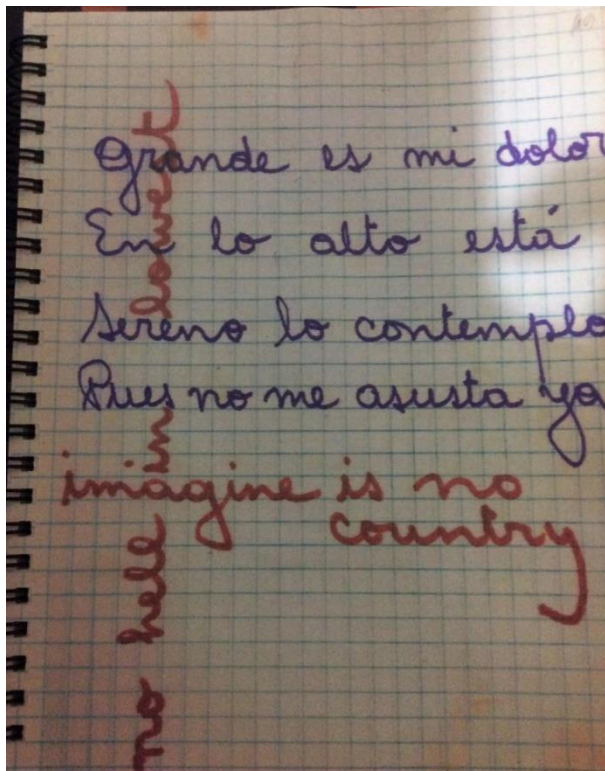 Grande es mi dolor
En lo alto está
Sereno lo contemplo
Pues no me asusta ya
imagine is no
country
no hell in lowest